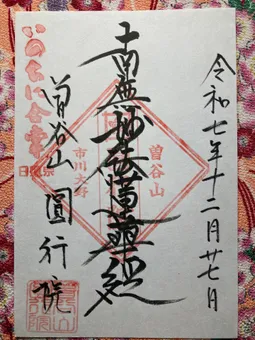 令和七年十二月廿七日
南無妙法蓮華経
曽谷山
市川大野
いのちに合掌
日蓮宗
曽谷山 圓行院